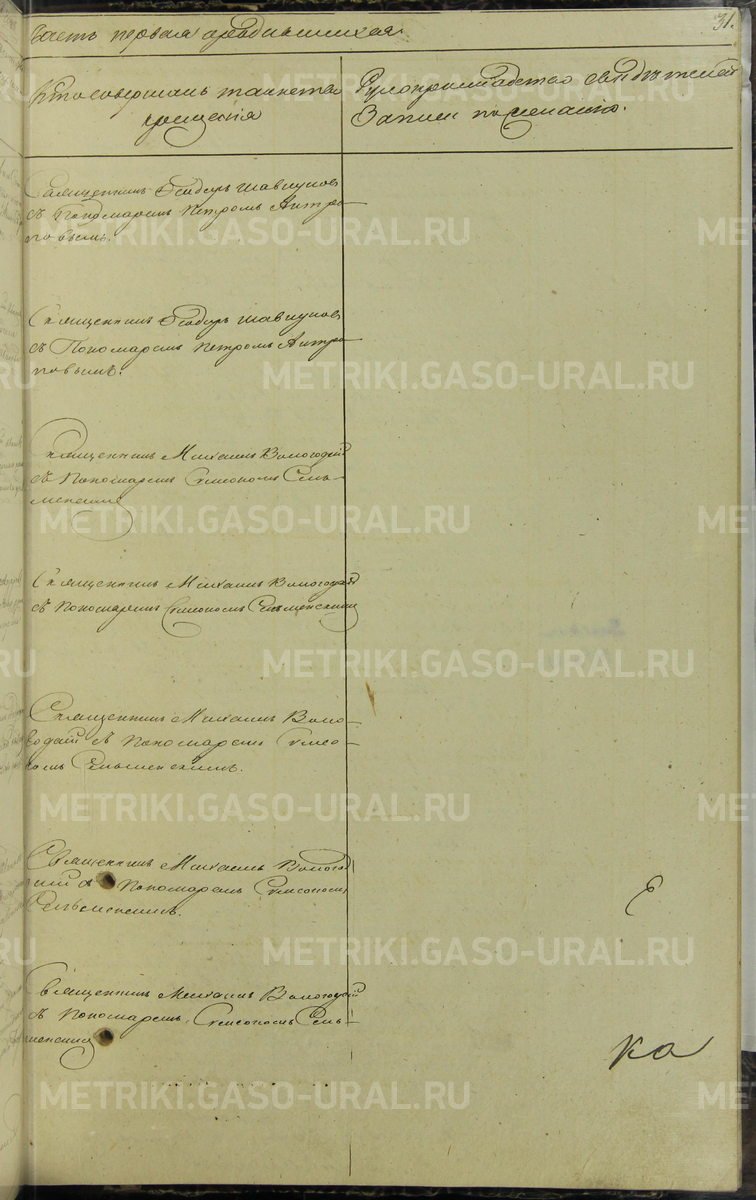 Часть первая о родившихся.
31.
Кто совершалъ таинство
крещенія
Рукоприкладство свидѣтелей
Записи по желанію.
Священникъ Ѳедоръ Шавкуновъ
съ Пономаремъ Петромъ Антро-
повымъ.
Священникъ Ѳедоръ Шавкуновъ
съ Пономаремъ Петромъ Антро-
повымъ.
Священникъ Михаилъ Вологодкій
съ Пономаремъ Симеономъ Сель-
менскимъ
Священникъ Михаилъ Вологодкій
съ Пономаремъ Симеономъ Сельменскимъ
Священникъ Михаилъ Воло-
годкій съ Пономаремъ Симео-
номъ Сельменскимъ.
Священникъ Михаилъ Волого-
дкій съ Пономаремъ Симеономъ
Сельменскимъ.
Священникъ Михаилъ Вологодкій
съ Пономаремъ Симеономъ Сель-
менскимъ
ка
METRIKI.GASO-URAL.RU